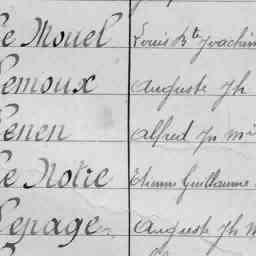 Le Mouel Louis Bte Joachim
Lemoux Auguste Jh
Lenen Alfred Jn Mie
Le Notre Etienne Guillaume
Lepage Auguste Jh M